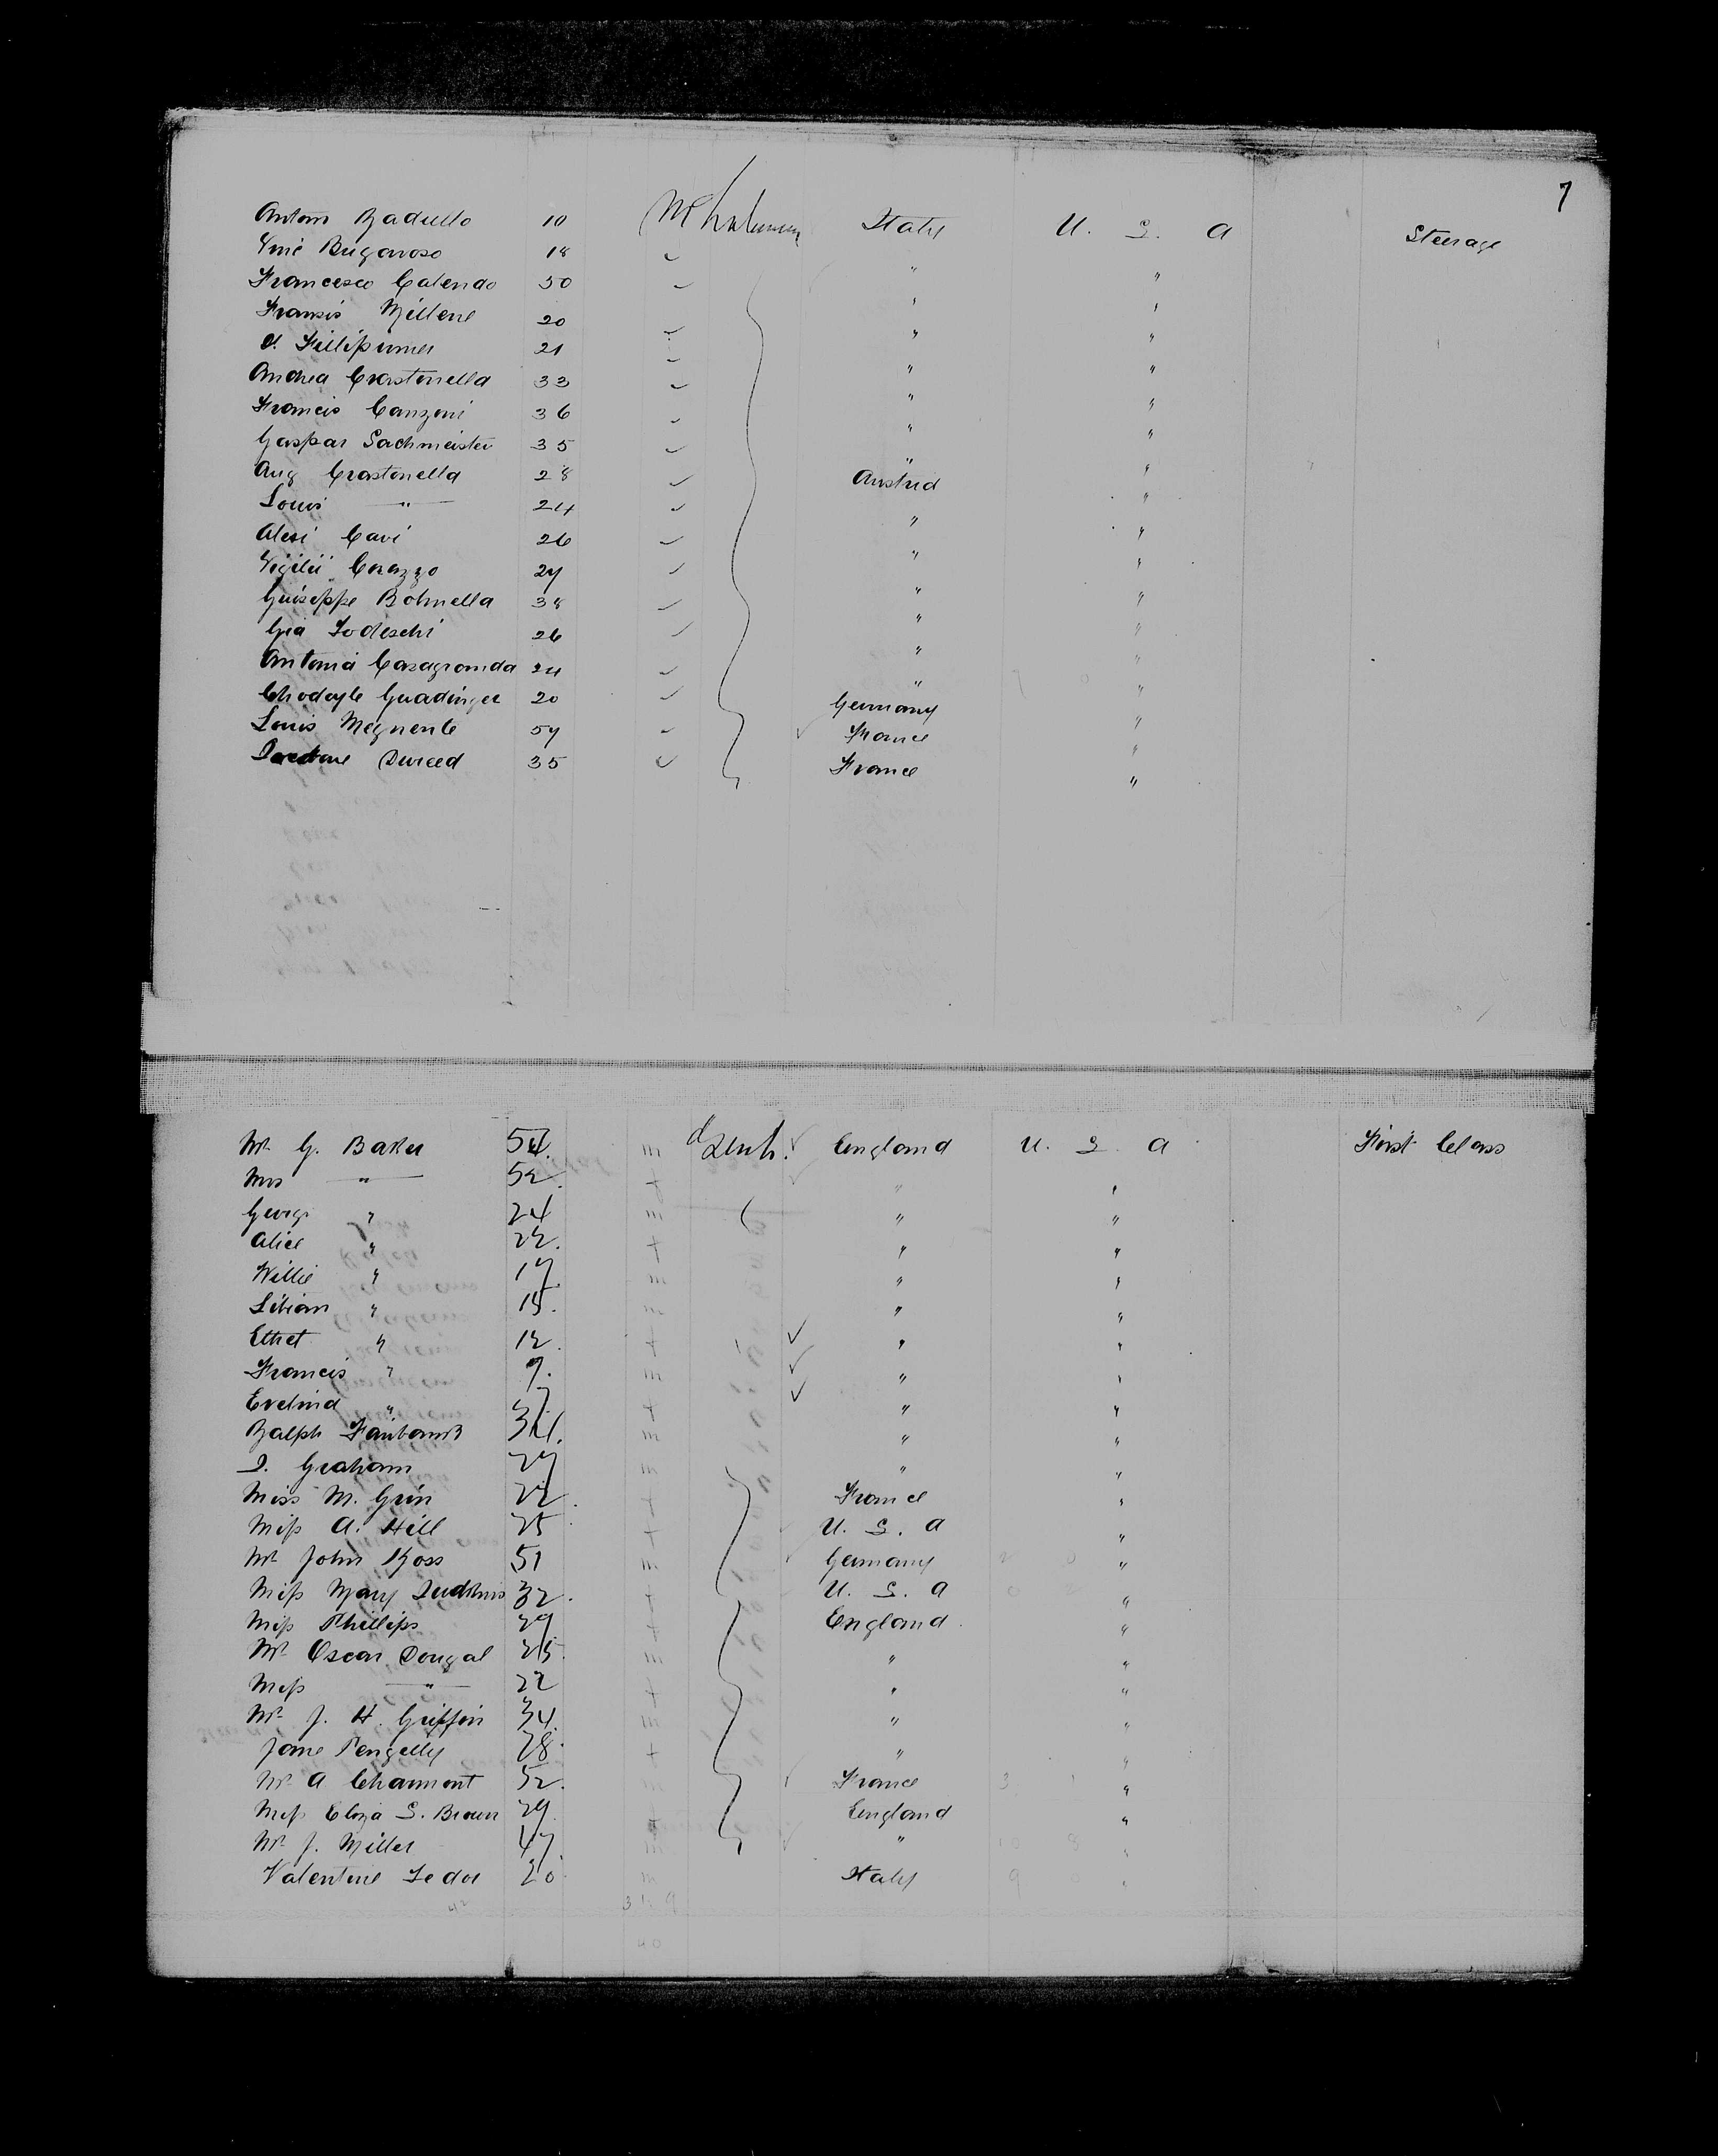 7
Antoni Badullo 10 M Italy U. S. A Steerage
Bugonoso 18 " "
Francesco Calendo 30 " "
Fransis Millene 20 " "
Fillipumer 21 " "
Andrea Crastonella 33 " "
Francis Canzoni 36 " "
Gaspar Sachmeister 35 " "
Aug Crastonella 28 Austria "
Louis " 24 " "
Alesi Cavi 26 " "
Vigilii Corazzo 27 " "
Guiseppe Bolmella 38 " "
Gia Todeschi 26 " "
Antonia Casagranda 24 " "
Guadinger 20 Germany "
Louis Megnente 57 France "
35 France "
Mr G. Baker 54. England U. S. A First Class
Mrs " 52. " "
George " 24 " "
Alice " 22. " "
Willie " 17 " "
Lilian " 15. " "
Ethel " 12. " "
Francis " 9. " "
Evelina " 7. " "
Ralph Fairbanks 34. " "
Graham 27 " "
Miss M. Grin 22. France "
Miss A. Hill 25 U. S. A "
Mr John Koss 51 Germany "
Miss Mary 32. U. S. A "
Miss Phillips 29 England "
Mr Oscar Dougal 25. " "
Miss " 22 " "
Mr J. H. Griffin 34. " "
Jane Pengelly 28. " "
Mr A Charmont 52. France "
Miss Eliza S. Brown 29. England "
Mr J. Miller 47. " "
Valentine Ledoi 20. Italy "